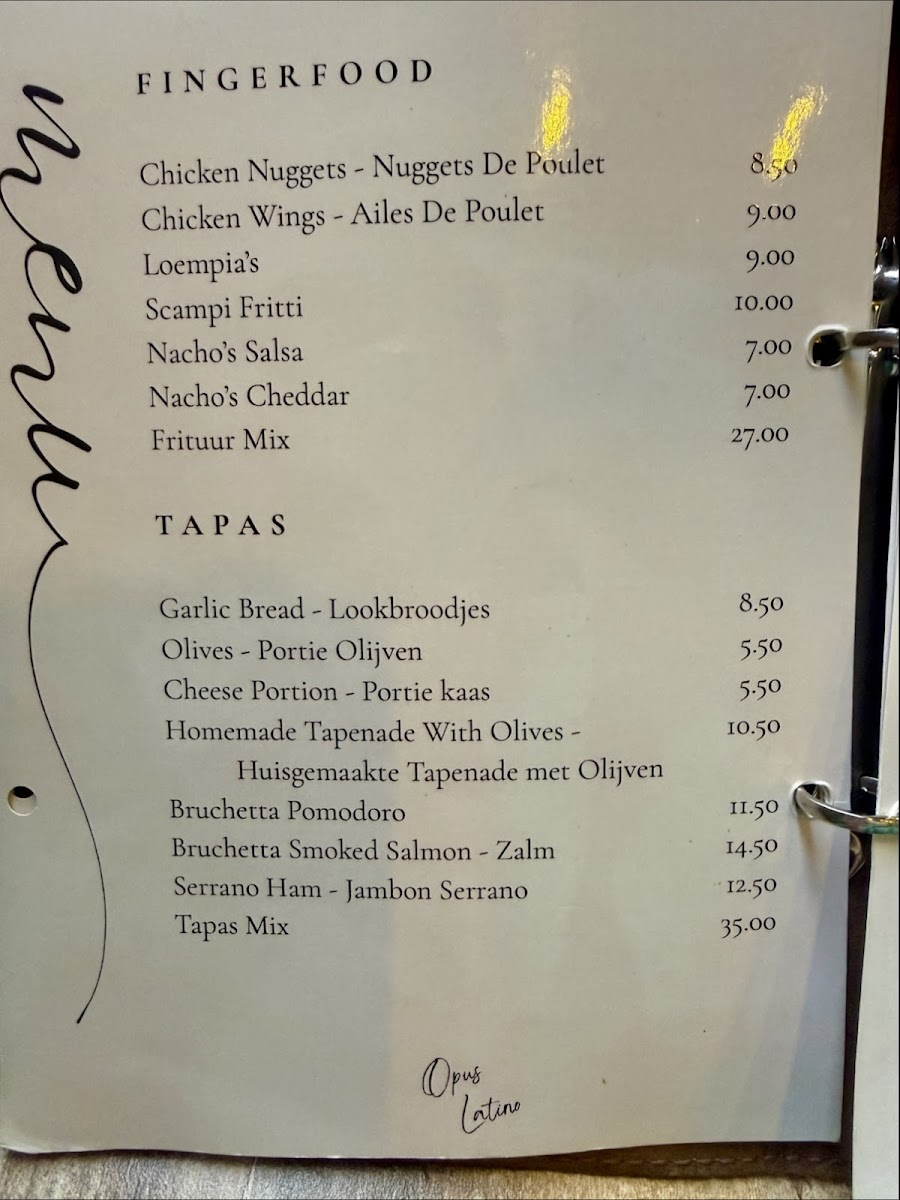 menu
FINGERFOOD
Chicken Nuggets - Nuggets De Poulet 8.50
Chicken Wings - Ailes De Poulet 9.00
Loempia's 9.00
Scampi Fritti 10.00
Nacho's Salsa 7.00
Nacho's Cheddar 7.00
Frituur Mix 27.00
TAPAS
Garlic Bread - Lookbroodjes 8.50
Olives - Portie Olijven 5.50
Cheese Portion - Portie kaas 5.50
Homemade Tapenade With Olives - 10.50
Huisgemaakte Tapenade met Olijven
Bruchetta Pomodoro 11.50
Bruchetta Smoked Salmon - Zalm 14.50
Serrano Ham - Jambon Serrano 12.50
Tapas Mix 35.00
Opus
Latino